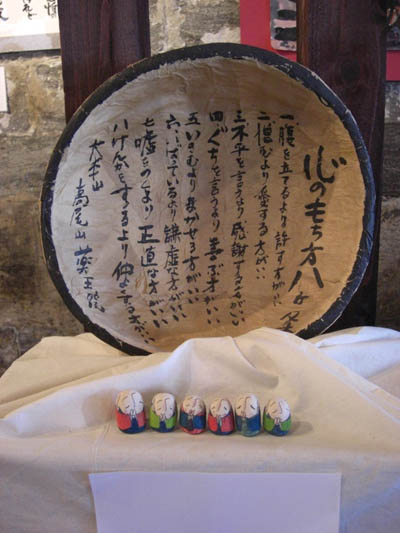 心のもち方八ヶ条
一、腹を立てるより許す方がいい
二、憎むより愛する方がいい
三、不平を言うより感謝する方がいい
四、ぐちを言うより喜ぶ方がいい
五、いさむより
六、より謙虚な方がいい
七、嘘をつくより正直な方がいい
八、けんかをするより仲よくする方がいい
大本山
高尾山薬王院